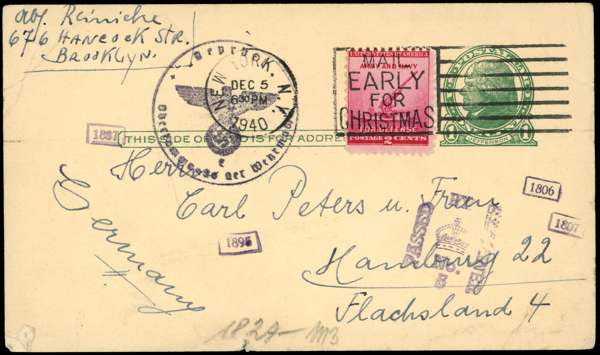 Abs. Reiniche
676 HANCOCK STR.
BROOKLYN.
Geprüft
Oberkommando der Wehrmacht
e
NEW YORK, N.Y.
DEC 5
630 PM
1940
MAIL
EARLY
FOR
CHRISTMAS
UNITED STATES OF AMERICA
ARMY AND NAVY
POSTAGE 2 CENTS
U.S. POSTAGE
1 JEFFERSON 1
THIS SIDE OF CARD IS FOR ADDRESS
1887
Herrn
Carl Peters u. Frau
Hamburg 22
Flachsland 4
Germany
1806
1807
1895
PASSED BY
CENSOR
NO.
1829-